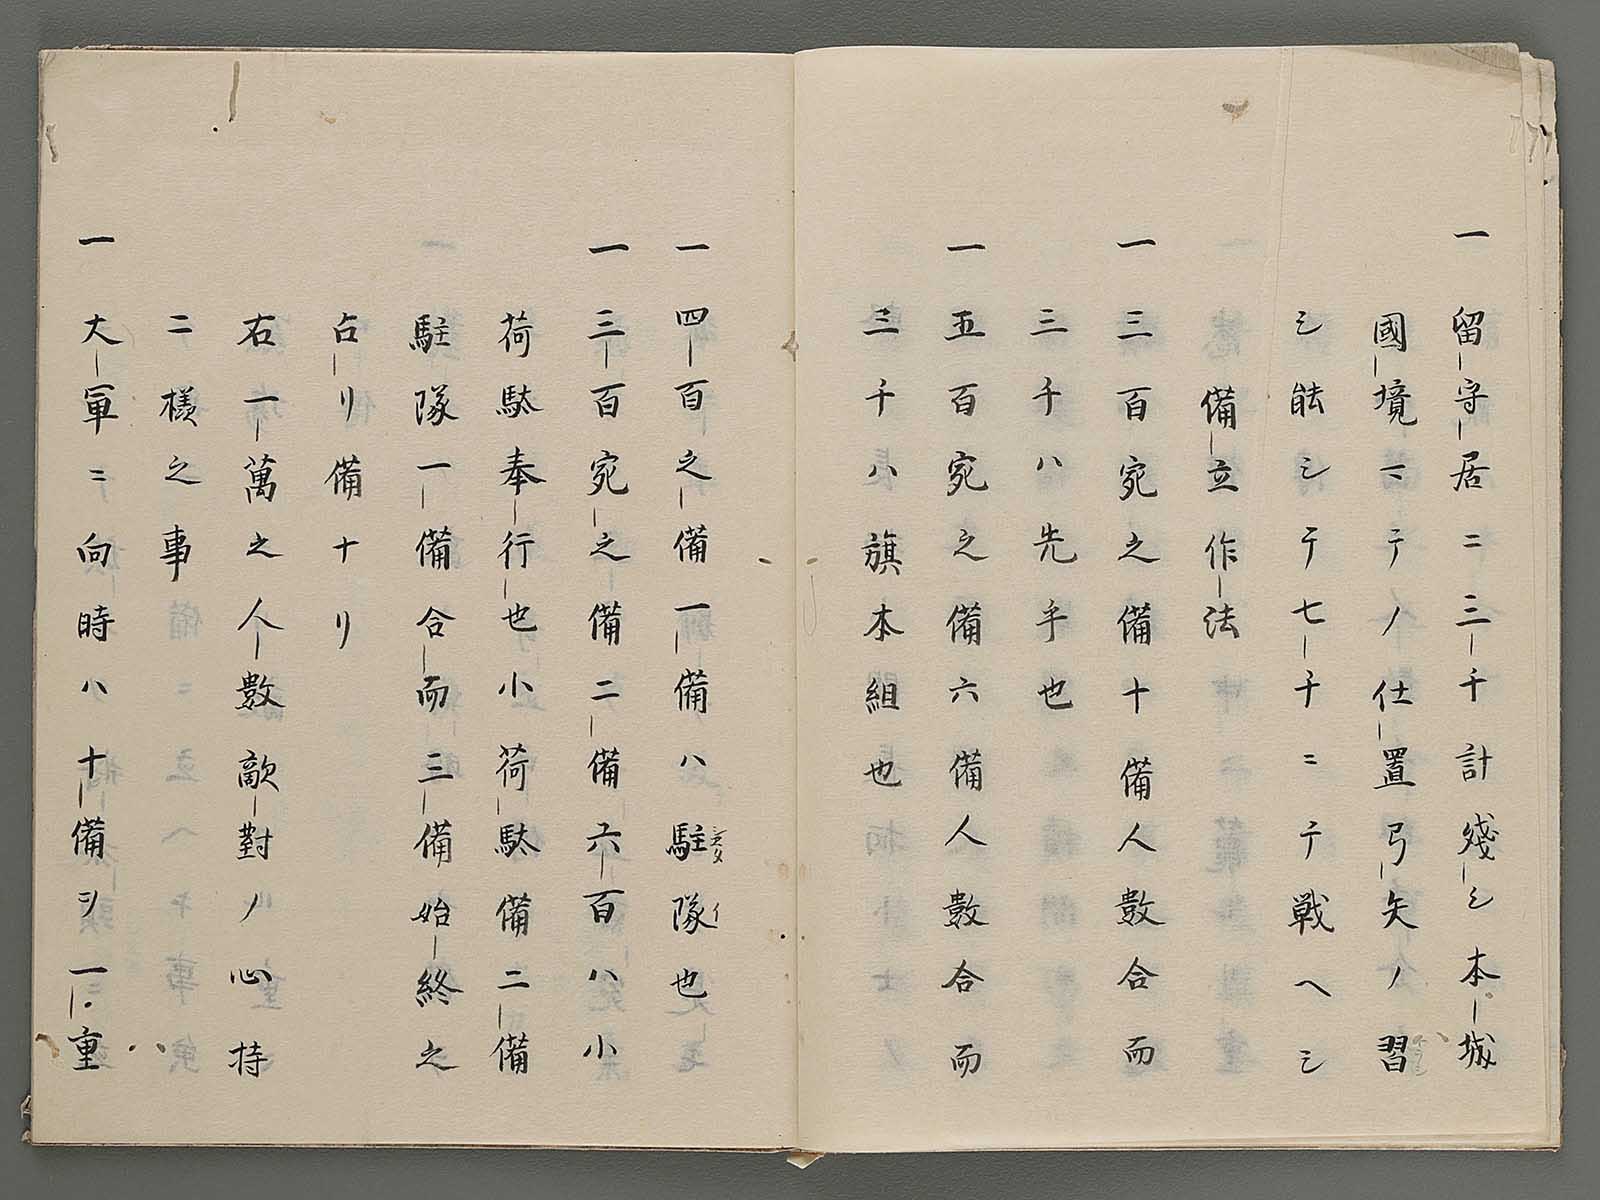 一留守居ニ三千計殘シ本城
國境ニテノ仕置弓矢ノ習
シ能シテ七千ニテ戦ヘシ
備立作法
一三百宛之備十備人数合而
三千ハ先手也
一五百宛之備六備人数合而
三千ハ旗本組也
一四百之備一備ハ駐隊也
一三百宛之備二備六百ハ小
荷駄奉行也小荷駄備二備
駐隊一備合而三備始終之
占リ備ナリ
右一萬之人數敵對ノ心持
ニ樣之事
一大軍ニ向時ハ十備ヲ一重